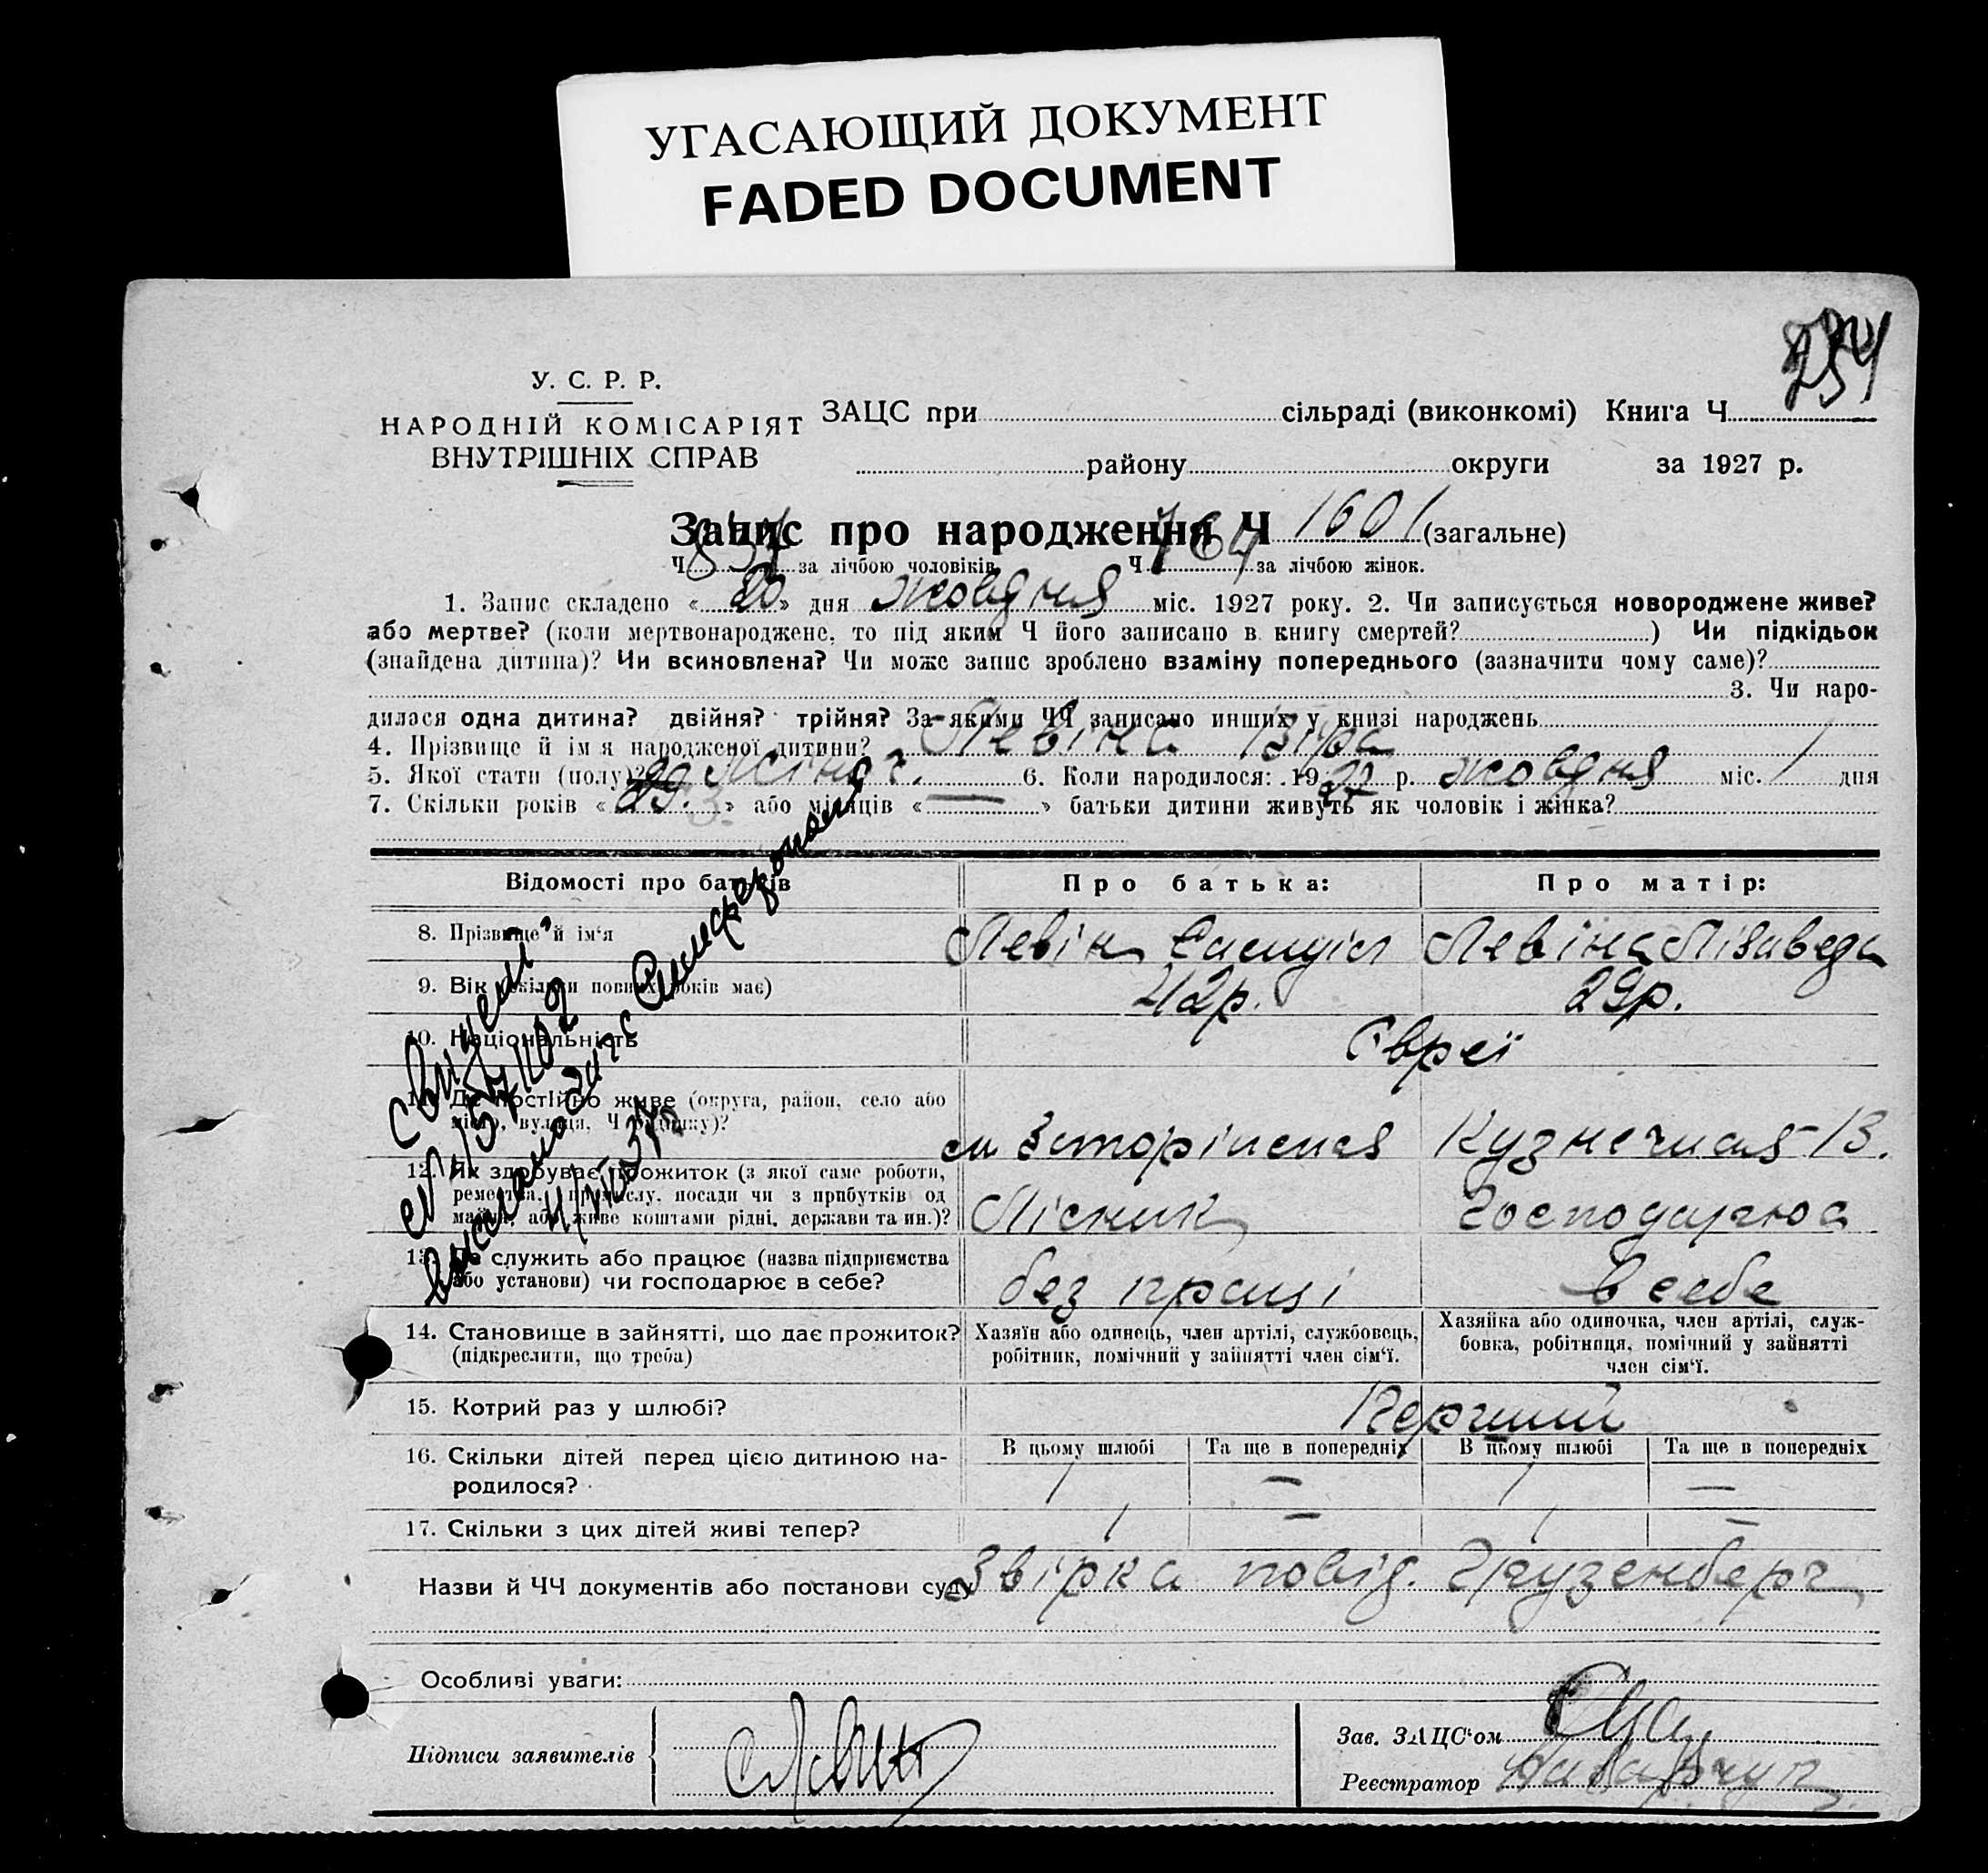 УГАСАЮЩИЙ ДОКУМЕНТ
FADED DOCUMENT
У. С. Р. Р.
НАРОДНІЙ КОМІСАРІЯТ
ВНУТРІШНІХ СПРАВ
ЗАЦС при сільраді (виконкомі) Книга Ч
району округи за 1927 р.
Запис про народження Ч 1601 (загальне)
Ч 837 за лічбою чоловіків Ч 764 за лічбою жінок.
1. Запис складено « 20 » дня жовдня міс. 1927 року. 2. Чи записується новороджене живе?
або мертве? (коли мертвонароджене, то під яким Ч його записано в книгу смертей? ) Чи підкідьок
(знайдена дитина)? Чи всиновлена? Чи може запис зроблено взаміну попереднього (зазначити чому саме)?
3. Чи наро-
дилася одна дитина? двійня? трійня? За якими ЧЧ записано инших у книзі народжень
4. Прізвище й ім'я народженої дитини? Левіна Віра
5. Якої стати (полу)? жіноч. 6. Коли народилося: 1927 р. жовдня міс. 1 дня
7. Скільки років « 3. » або місяців « — » батьки дитини живуть як чоловік і жінка?
Відомості про батьків Про батька: Про матір:
8. Прізвище й ім'я Левін Самуіл Левіна Лізаведа
9. Вік (скільки повних років має) 42р. 29р.
10. Національність Євреї
11. Де постійно живе (округа, район, село або
місто, вулиця, Ч будинку)? Кузнечная 13.
12. Як здобуває прожиток (з якої саме роботи,
ремества, промислу, посади чи з прибутків од
майна, або живе коштами рідні, держави та ин.)? Лісник Господарюа
13. Де служить або працює (назва підприємства
або установи) чи господарює в себе? без праці в себе
14. Становище в зайнятті, що дає прожиток?
(підкреслити, що треба)
Хазяїн або одинець, член артілі, службовець,
робітник, помічний у зайнятті член сім'ї.
Хазяйка або одиночка, член артілі, служ-
бовка, робітниця, помічний у зайнятті
член сім'ї.
15. Котрий раз у шлюбі? Перший
В цьому шлюбі Та ще в попередніх В цьому шлюбі Та ще в попередніх
16. Скільки дітей перед цією дитиною на-
родилося? 1 — 1 —
17. Скільки з цих дітей живі тепер? 1 — 1 —
Назви й ЧЧ документів або постанови суду Звірка повід. Грузенберг
Особливі уваги:
Підписи заявителів
Зав. ЗАЦС'ом
Реєстратор